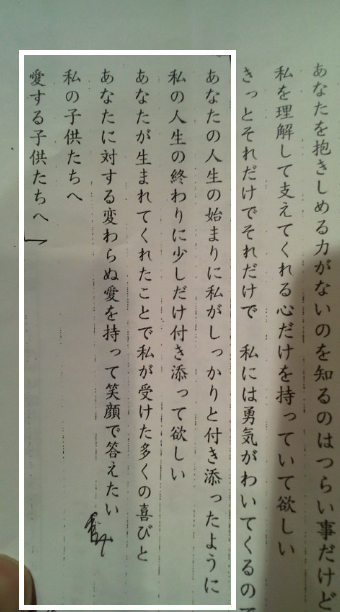 あなたを抱きしめる力がないのを知るのはつらい事だけど
私を理解して支えてくれる心だけを持っていて欲しい
きっとそれだけでそれだけで 私には勇気がわいてくるの
あなたの人生の始まりに私がしっかりと付き添ったように
私の人生の終わりに少しだけ付き添って欲しい
あなたが生まれてくれたことで私が受けた多くの喜びと
あなたに対する変わらぬ愛を持って笑顔で答えたい
私の子供たちへ
愛する子供たちへ」